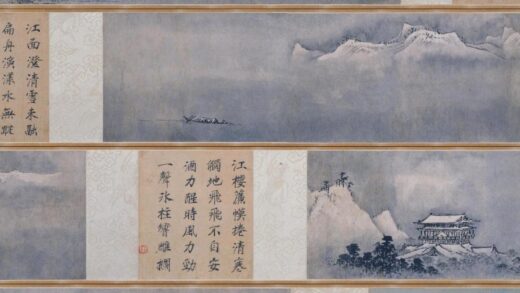 江面澄清雪未融
扁舟演漾水無蹤
江樓簾幙捲清寒
觸地飛飛不自安
酒力醒時風力勁
一聲氷柱響雕欄